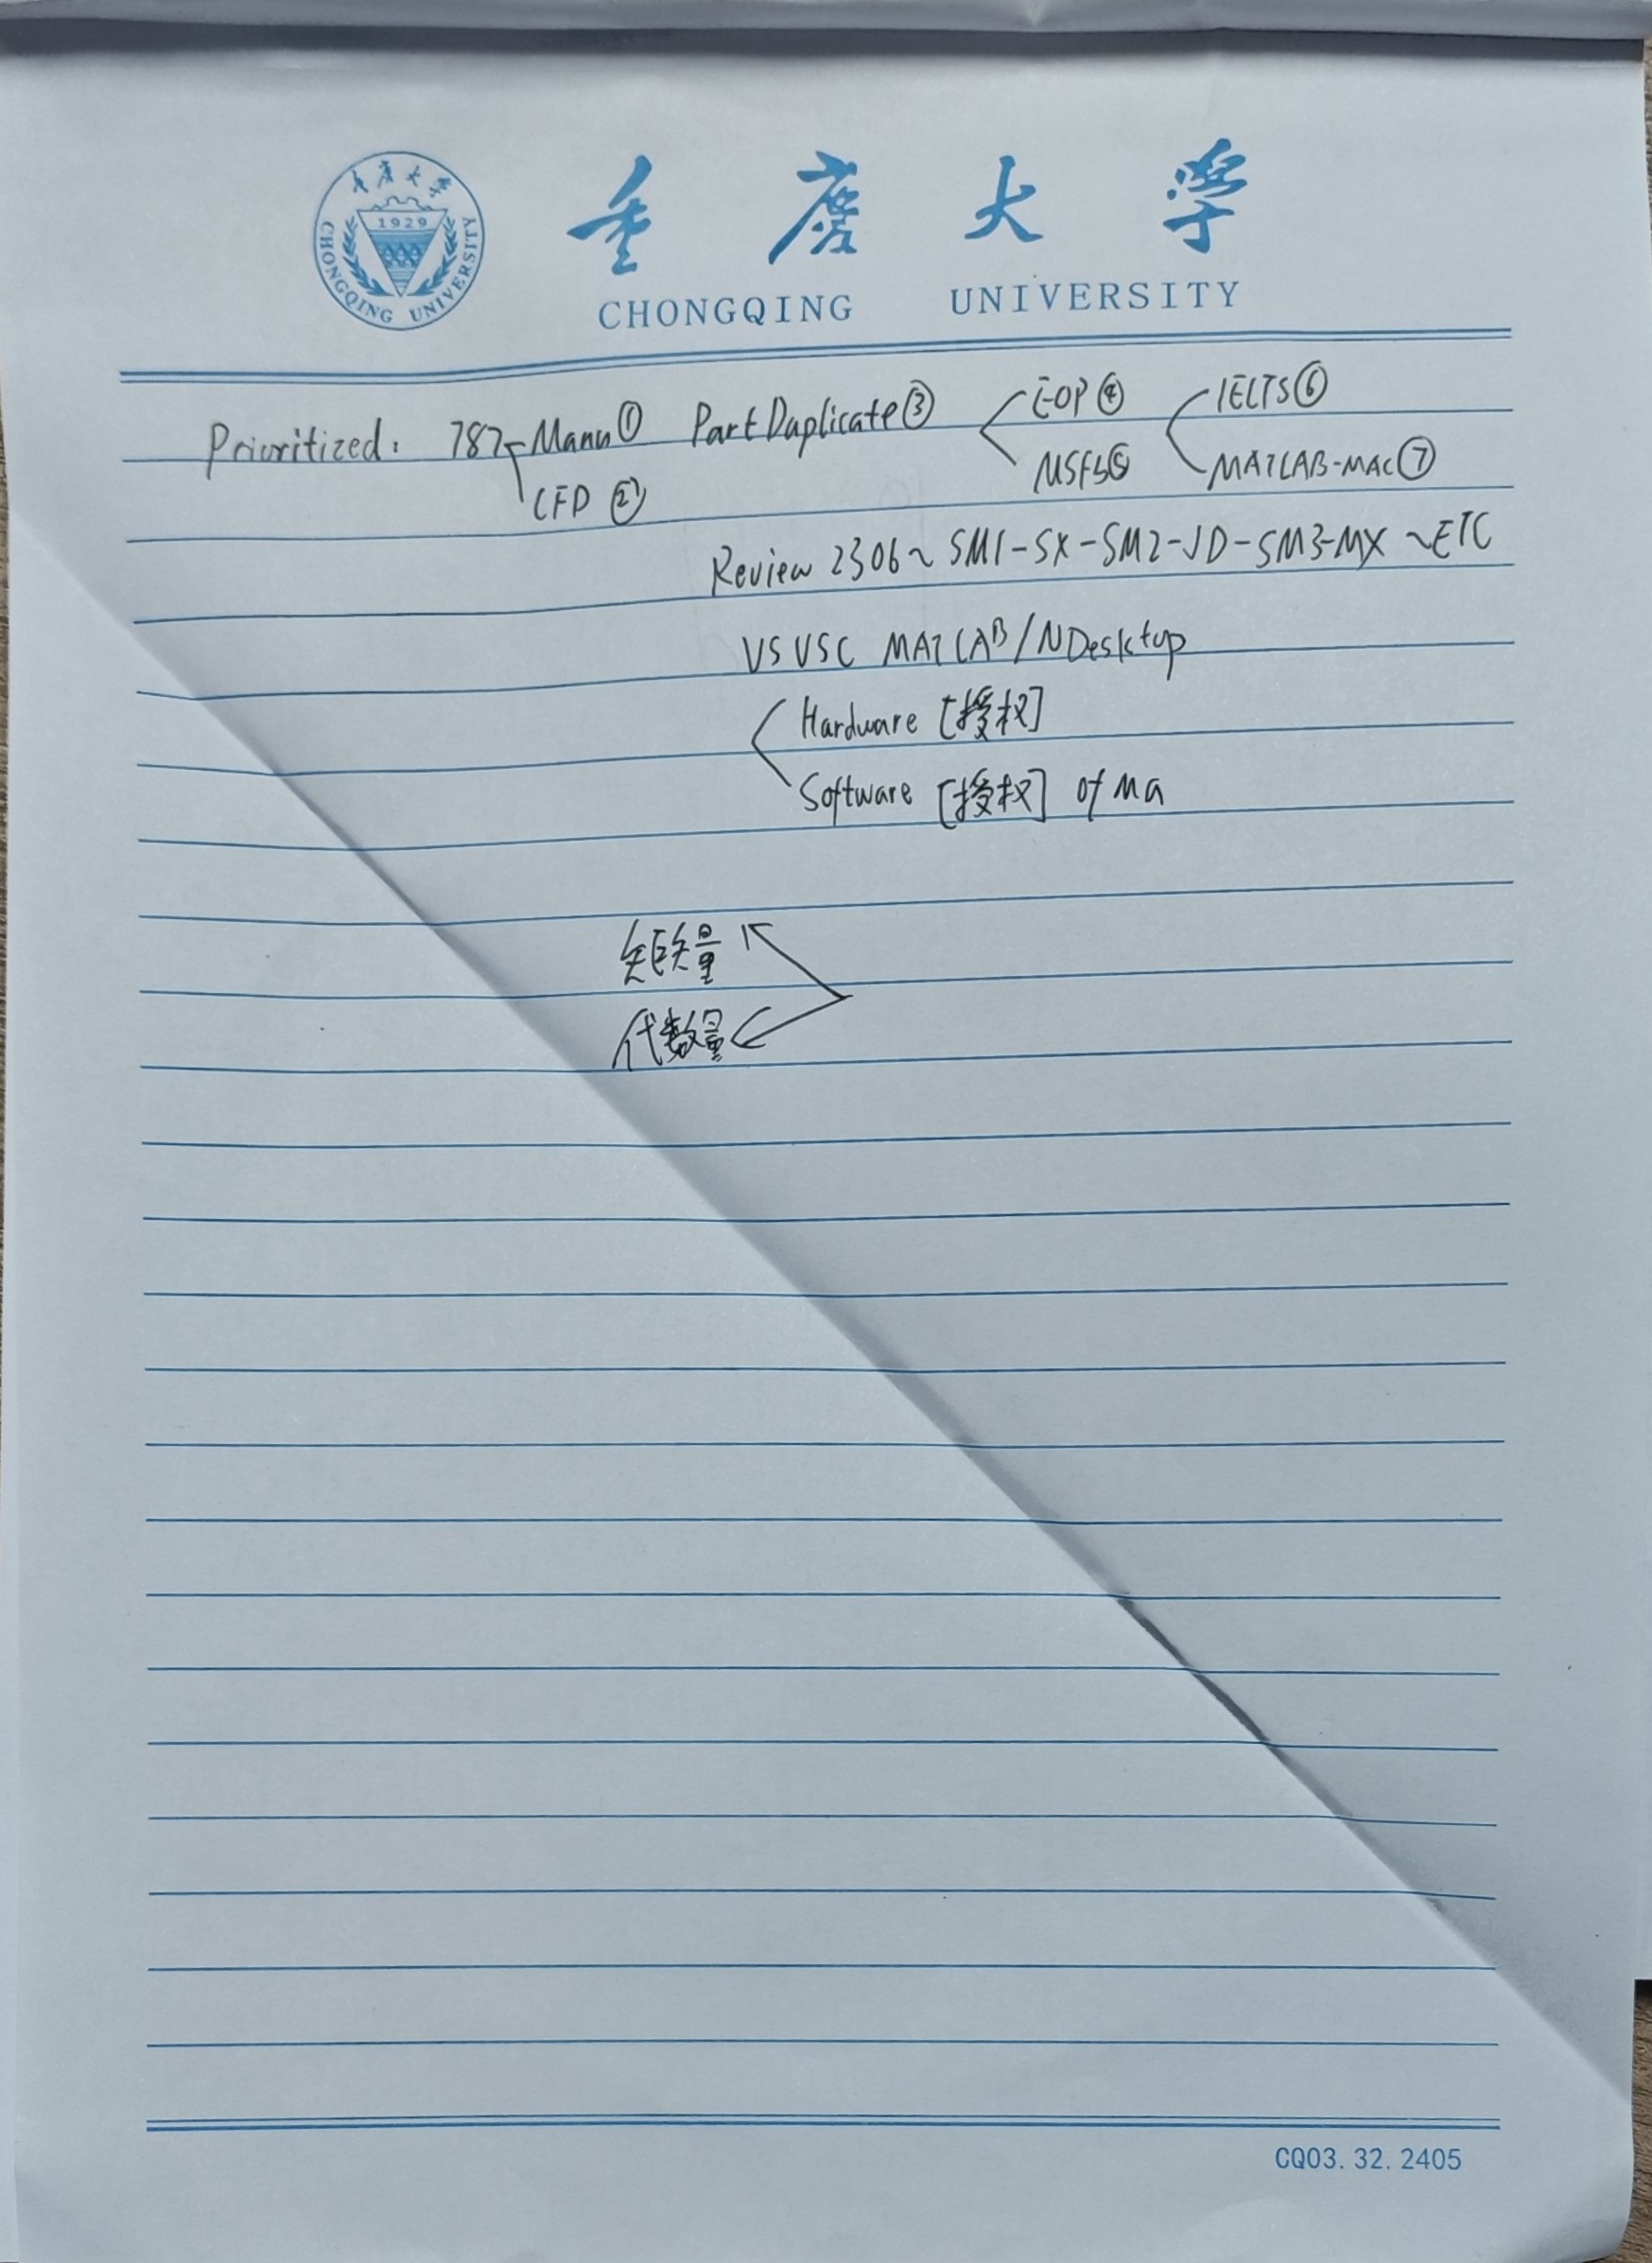 重庆大学
1929
CHONGQING UNIVERSITY
重庆大学
CHONGQING UNIVERSITY
Prioritized: 787-Manu① Part Duplicate③ EOP④ IELTS⑥
CFD② MSFS⑤ MATLAB-MAC⑦
Review 2306~SM1-SX-SM2-JD-SM3-MX~ETC
VS VSC MATLAB/NDesktop
Hardware [授权]
Software [授权] of Ma
矩矢量
代数量
CQ03.32.2405